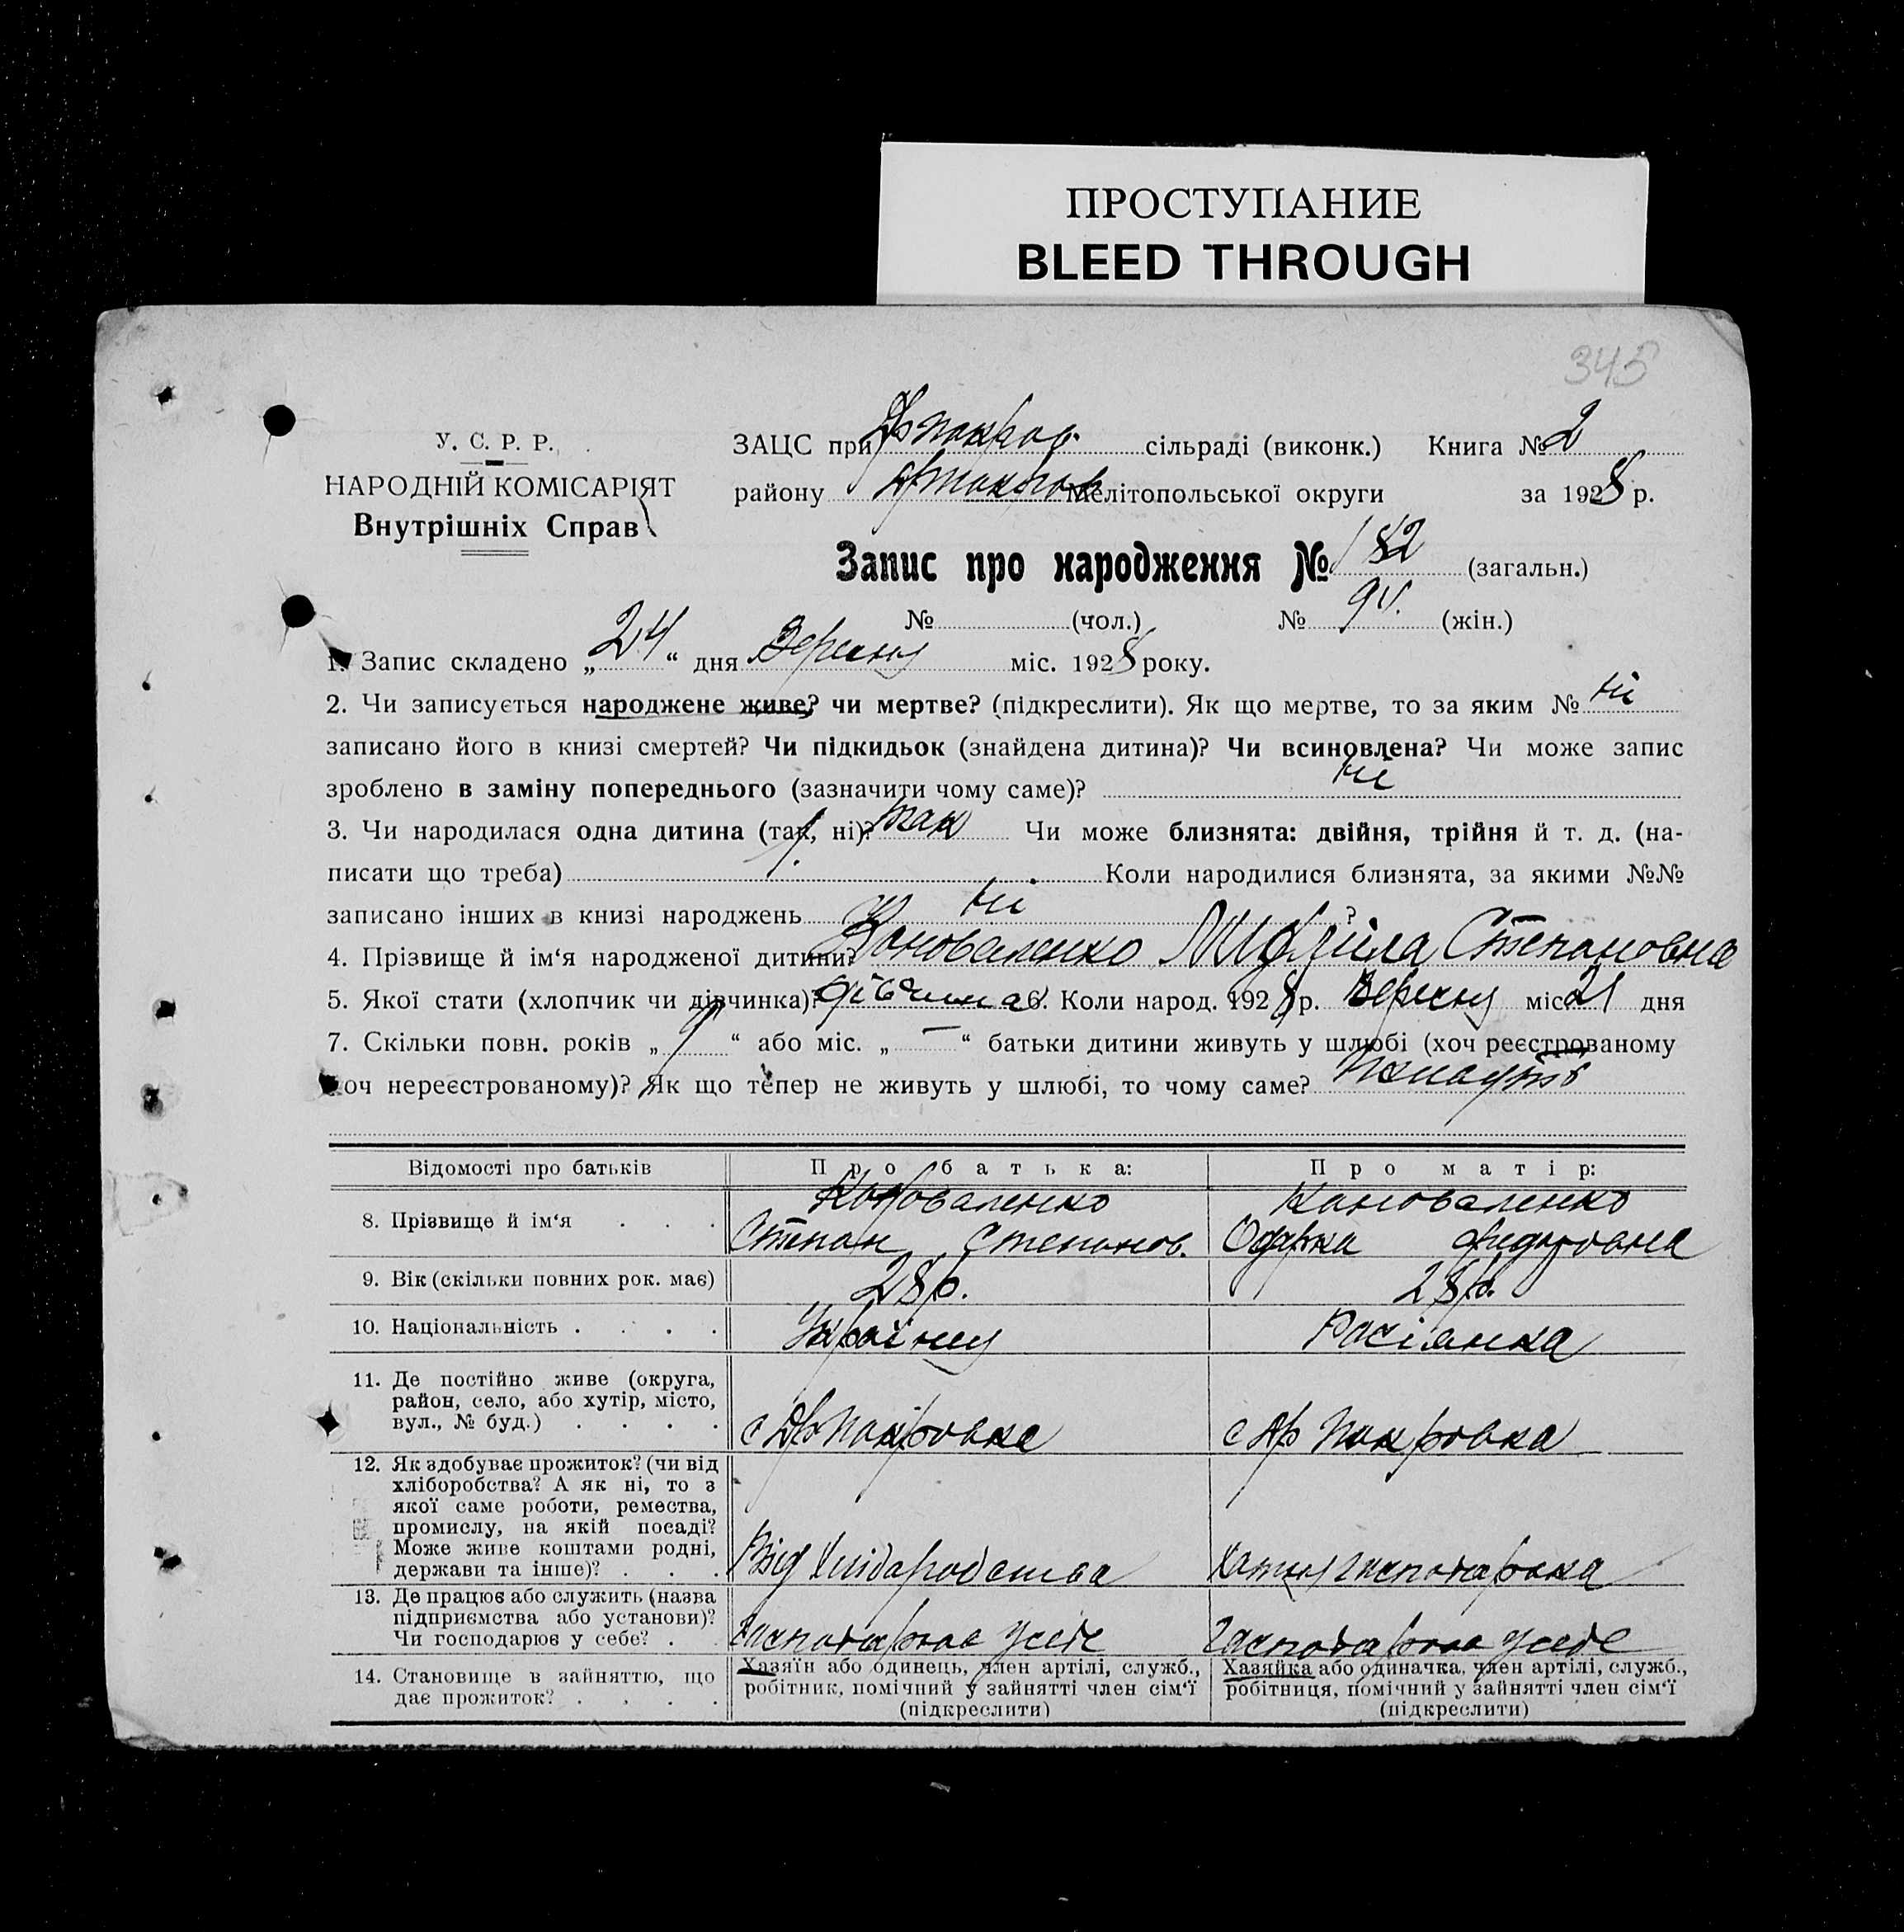 ПРОСТУПАНИЕ
BLEED THROUGH
345
У. С. Р. Р.
НАРОДНІЙ КОМІСАРІЯТ
Внутрішніх Справ
ЗАЦС при сільраді (виконк.) Книга № 2
району Мелітопольської округи за 1928 р.
Запис про народження № 182 (загальн.)
№ (чол.) № (жін.)
1. Запис складено „24“ дня Вересня міс. 1928 року.
2. Чи записується народжене живе? чи мертве? (підкреслити). Як що мертве, то за яким № ні
записано його в книзі смертей? Чи підкидьок (знайдена дитина)? Чи всиновлена? Чи може запис
зроблено в заміну попереднього (зазначити чому саме)? ні
3. Чи народилася одна дитина (так, ні)? так Чи може близнята: двійня, трійня й т. д. (на-
писати що треба) Коли народилися близнята, за якими №№
записано інших в книзі народжень ні ?
4. Прізвище й ім‘я народженої дитини? Коноваленко Степановна
5. Якої стати (хлопчик чи дівчинка)? дівчина 6. Коли народ. 1928 р. Вересня міс. 21 дня
7. Скільки повн. років „ “ або міс. „—“ батьки дитини живуть у шлюбі (хоч реєстрованому
хоч нереєстрованому)? Як що тепер не живуть у шлюбі, то чому саме?
Відомості про батьків Про батька: Про матір:
8. Прізвище й ім‘я . . . Коноваленко Степан Степанов. Коноваленко Одарка
9. Вік (скільки повних рок. має) 28 р. 28 р.
10. Національність . . . . Україн Росіянка
11. Де постійно живе (округа,
район, село, або хутір, місто,
вул., № буд.) . . . . с Др Покровка с Др Покровка
12. Як здобуває прожиток? (чи від
хліборобства? А як ні, то з
якої саме роботи, ремества,
промислу, на якій посаді?
Може живе коштами родні,
держави та інше)? . . . Від
13. Де працює або служить (назва
підприємства або установи)?
Чи господарює у себе? . господарює у себе господарює у себе
14. Становище в зайняттю, що
дає прожиток? . . . .
Хазяїн або одинець, член артілі, служб.,
робітник, помічний у зайнятті член сім‘ї
(підкреслити)
Хазяйка або одиначка, член артілі, служб.,
робітниця, помічний у зайнятті член сім‘ї
(підкреслити)